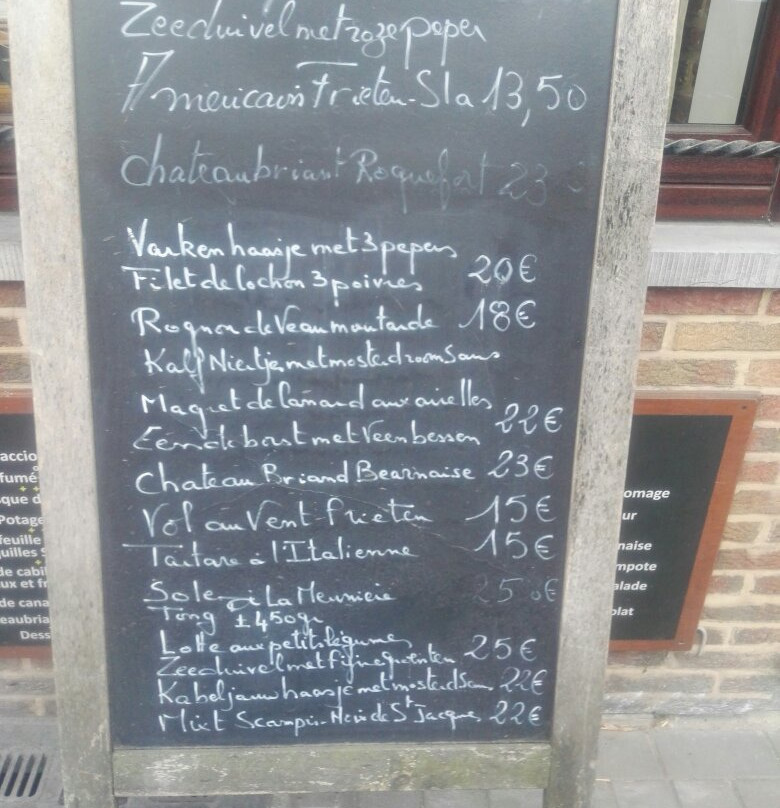 Zeeduivel met roze peper
Americain Frieten-Sla 13,50
Chateaubriant Roquefort 23
Varkenhaasje met 3 pepers
Filet de Cochon 3 poivres 20€
Rognon de Veau moutarde 18€
Kalf Niertje met mosterdroomsaus
Magret de Canard aux airelles
Eendeborst met Veenbessen 22€
Chateau Briand Bearnaise 23€
Vol au Vent-frieten 15€
Tartare à l'Italienne 15€
Sole à La Meuniere
Tong ± 450gr
Lotte aux petits légumes 25€
Zeeduivel met fijne groenten
Kabeljauwhaasje met mosterdSaus 22€
Mixt Scampi-Noix de St Jacques 22€
accio
fumé
que d
Potage
feuille
quilles S
de cabil
ux et fr
de cana
eaubria
Dess
omage
ur
naise
mpote
alade
olat